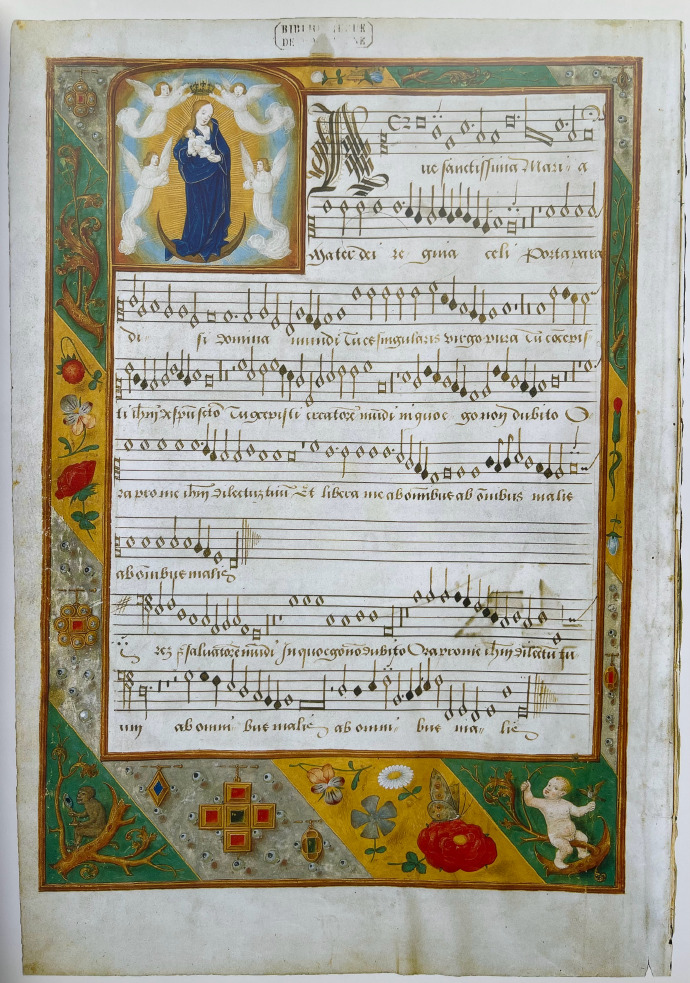 BIBLIOTHEEK
Ave sanctissima Maria
Mater dei regina celi Porta para
di si Domina mundi Tu es singularis virgo pura Tu cōcepis
ti ihm̄ Tu cepisti creatorē mūdi in quo ego non dubito O
ra pro me ihm̄ dilectuz tuū Et libera me ab omībus ab omībus malis
ab omībus malis
salvatorē mūdi In quo ego nō dubito Ora pro me ihm̄ dilectū tu
um ab omni bus malis ab omni bus ma lis